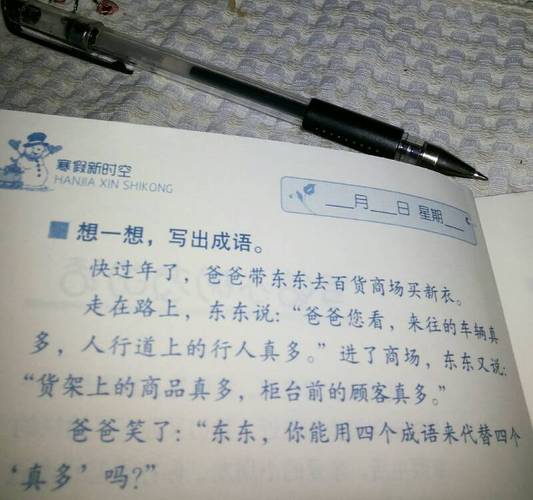 寒假新时空
HANJIA XIN SHIKONG
___月___日 星期___
想一想，写出成语。
快过年了，爸爸带东东去百货商场买新衣。
走在路上，东东说：“爸爸您看，来往的车辆真
多，人行道上的行人真多。”进了商场，东东又说：
“货架上的商品真多，柜台前的顾客真多。”
爸爸笑了：“东东，你能用四个成语来代替四个
‘真多’吗？”